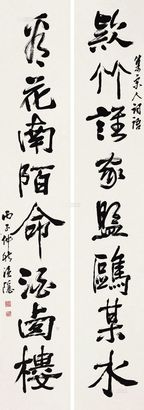 集宋人詞語
款竹誰家盟鷗某水
看花南陌命酒卥樓
丙子仲秋